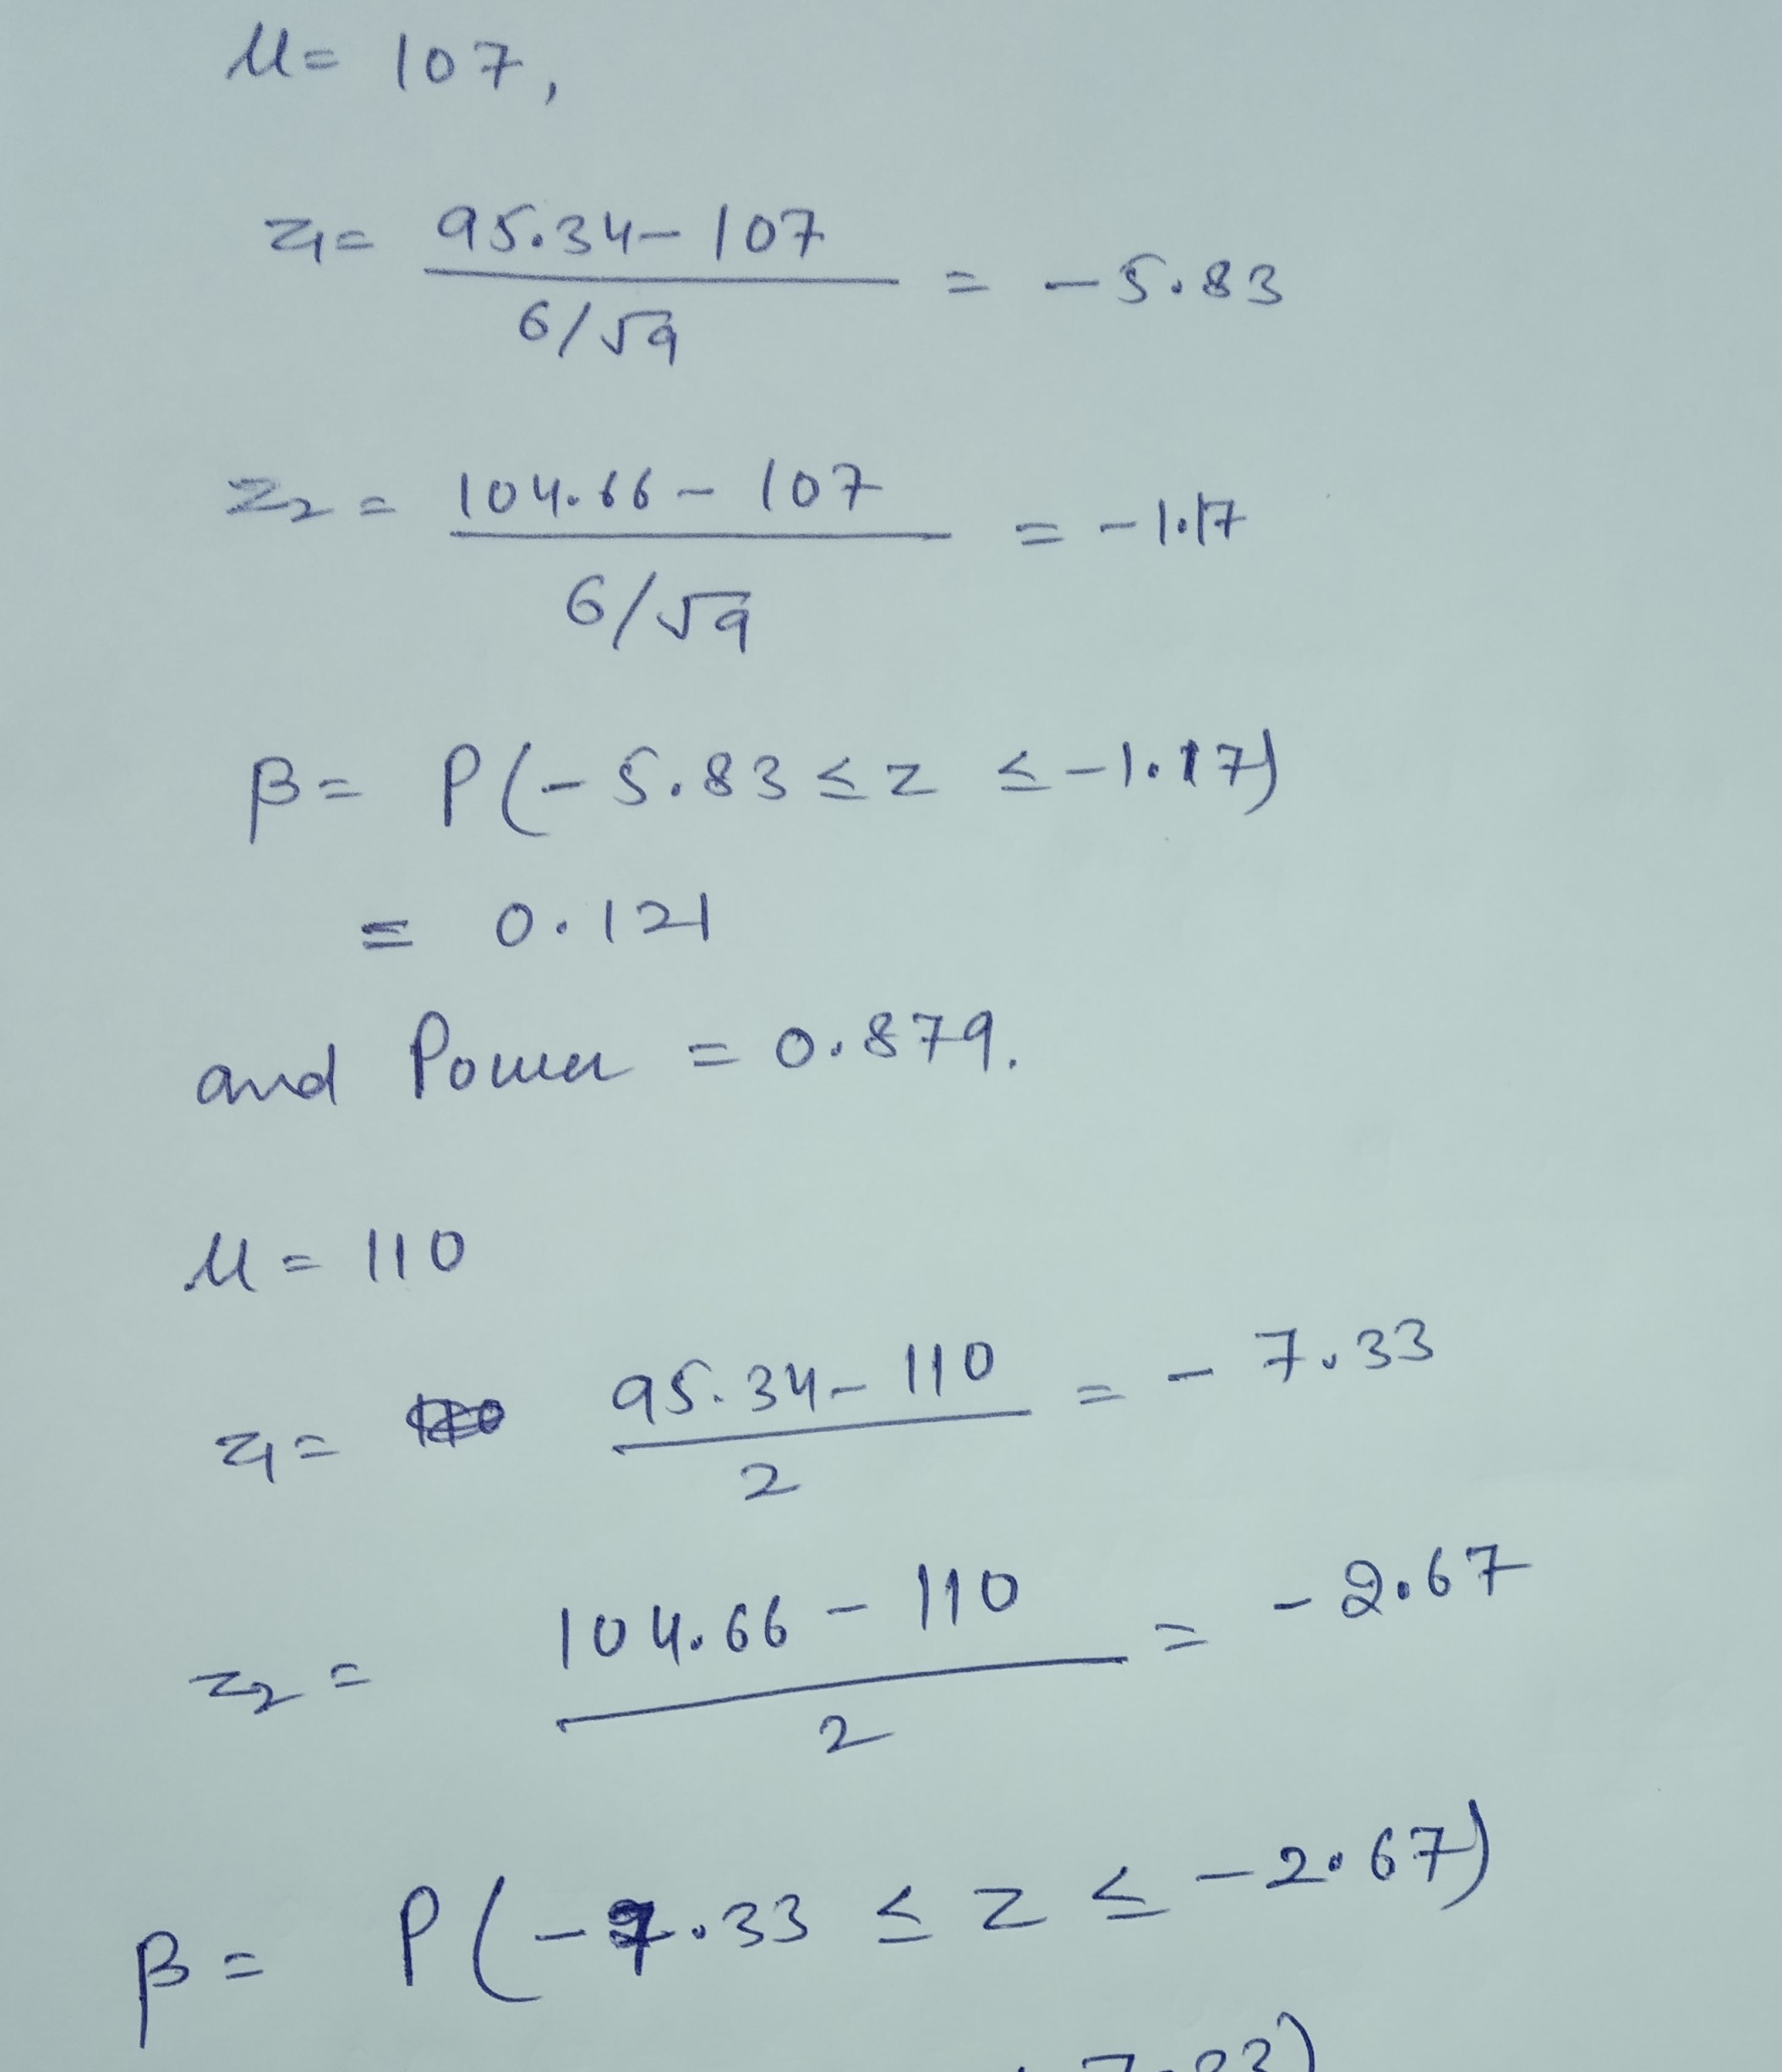 μ = 107,
z₁ = (95.34 - 107) / (6/√9) = - 5.83
z₂ = (104.66 - 107) / (6/√9) = - 1.17
β = P(- 5.83 ≤ z ≤ -1.17)
= 0.121
and Power = 0.879.
μ = 110
z₁ = (95.34 - 110) / 2 = - 7.33
z₂ = (104.66 - 110) / 2 = - 2.67
β = P(-7.33 ≤ z ≤ -2.67)